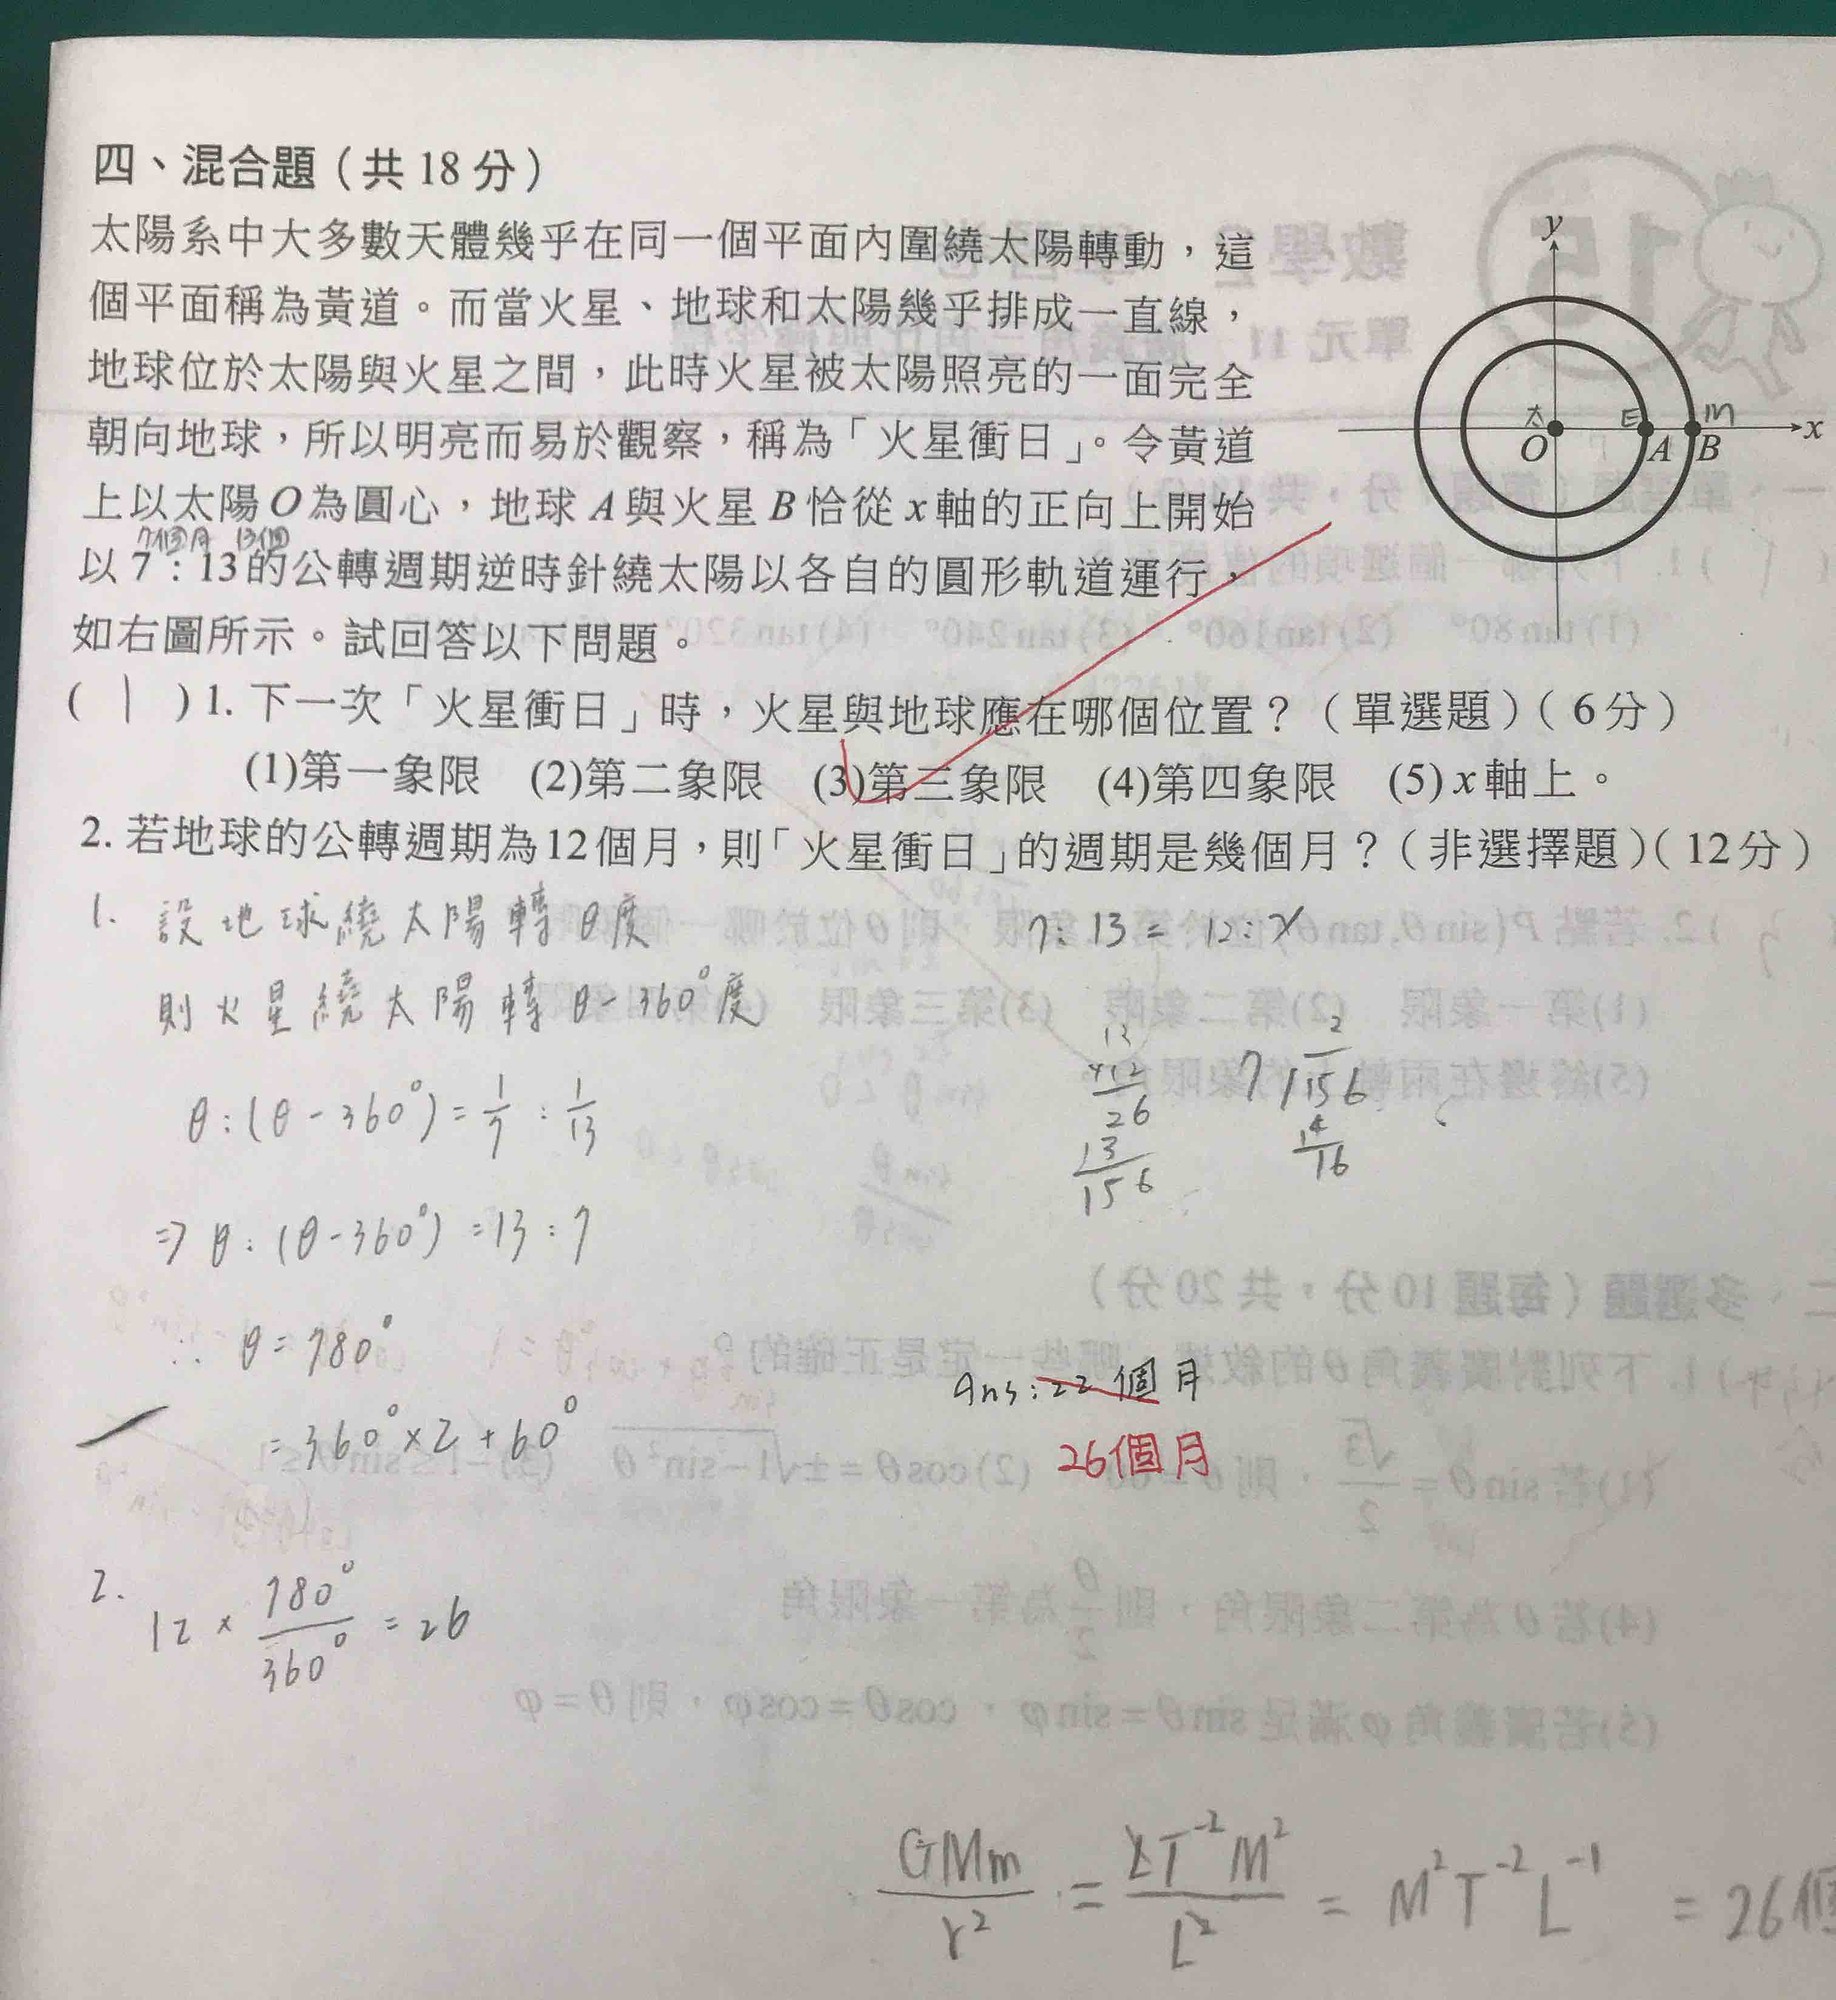 四、混合題（共 18 分）
太陽系中大多數天體幾乎在同一個平面內圍繞太陽轉動，這
個平面稱為黃道。而當火星、地球和太陽幾乎排成一直線，
地球位於太陽與火星之間，此時火星被太陽照亮的一面完全
朝向地球，所以明亮而易於觀察，稱為「火星衝日」。令黃道
上以太陽 O 為圓心，地球 A 與火星 B 恰從 x 軸的正向上開始
7個月 13個
以 7：13 的公轉週期逆時針繞太陽以各自的圓形軌道運行，
如右圖所示。試回答以下問題。
y
太 E M
O A B x
( 1 ) 1. 下一次「火星衝日」時，火星與地球應在哪個位置？（單選題）（6分）
(1)第一象限 (2)第二象限 (3)第三象限 (4)第四象限 (5) x 軸上。
2. 若地球的公轉週期為12個月，則「火星衝日」的週期是幾個月？（非選擇題）（12分）
1. 設地球繞太陽轉θ度
則火星繞太陽轉θ-360°度
θ:(θ-360°)=1/7:1/13
⇒ θ:(θ-360°)=13:7
∴ θ=780°
=360°×2+60°
2. 12×780°/360°=26
7:13=12:x
13
×12
26
13
156
2
7 156
14
16
ans:22個月
26個月
GMm/r² = LT⁻²M²/L² = M²T⁻²L⁻¹ = 26個